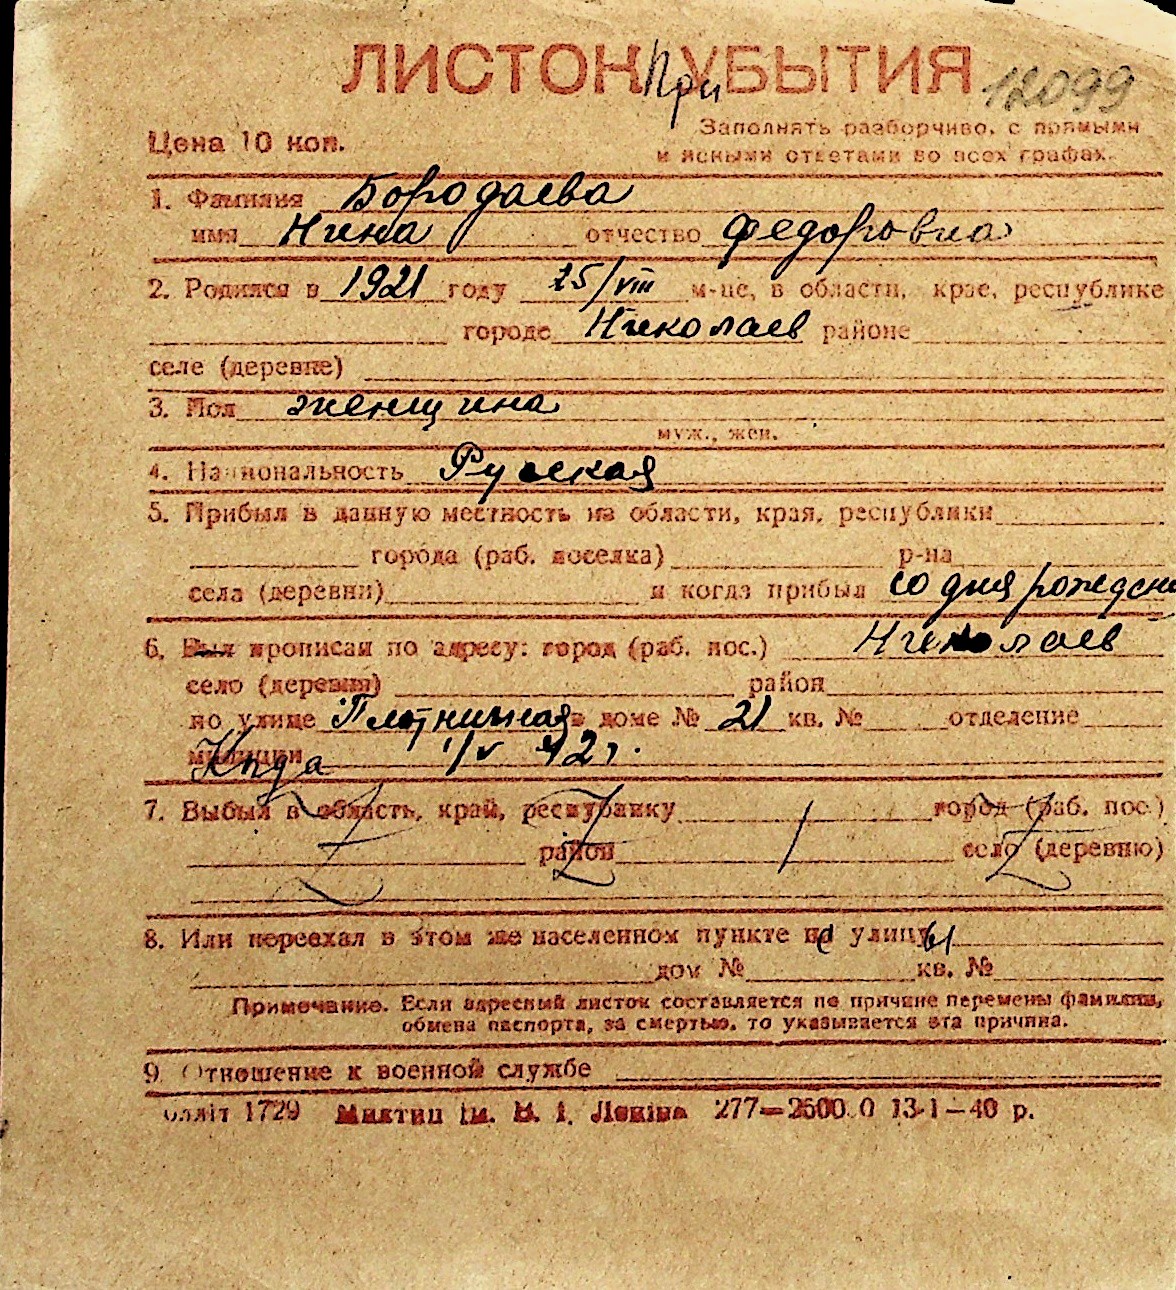 ЛИСТОК При УБЫТИЯ 12099
Цена 10 коп.
Заполнять разборчиво, с прямыми
и ясными ответами во всех графах.
1. Фамилия Бородаева
имя Нина отчество Федоровна
2. Родился в 1921 году 15/VIII м-це, в области, крае, республике
городе Николаев районе
селе (деревне)
3. Пол женщина
муж., жен.
4. Национальность Русская
5. Прибыл в данную местность из области, края, республики
города (раб. поселка) р-на
села (деревни) и когда прибыл со дня рожден
6. Был прописан по адресу: город (раб. пос.) Николаев
село (деревня) район
по улице Плотничная в доме № 21 кв. № отделение
милиции 1/V 42 г.
7. Выбыл в область, край, республику город (раб. пос.)
район село (деревню)
8. Или переехал в этом же населенном пункте с улицы
дом № кв. №
Примечание. Если адресный листок составляется по причине перемены фамилии,
обмена паспорта, за смертью, то указывается эта причина.
9. Отношение к военной службе
1729 ім. В. І. Леніна 277—2500.0 13-1—40 р.